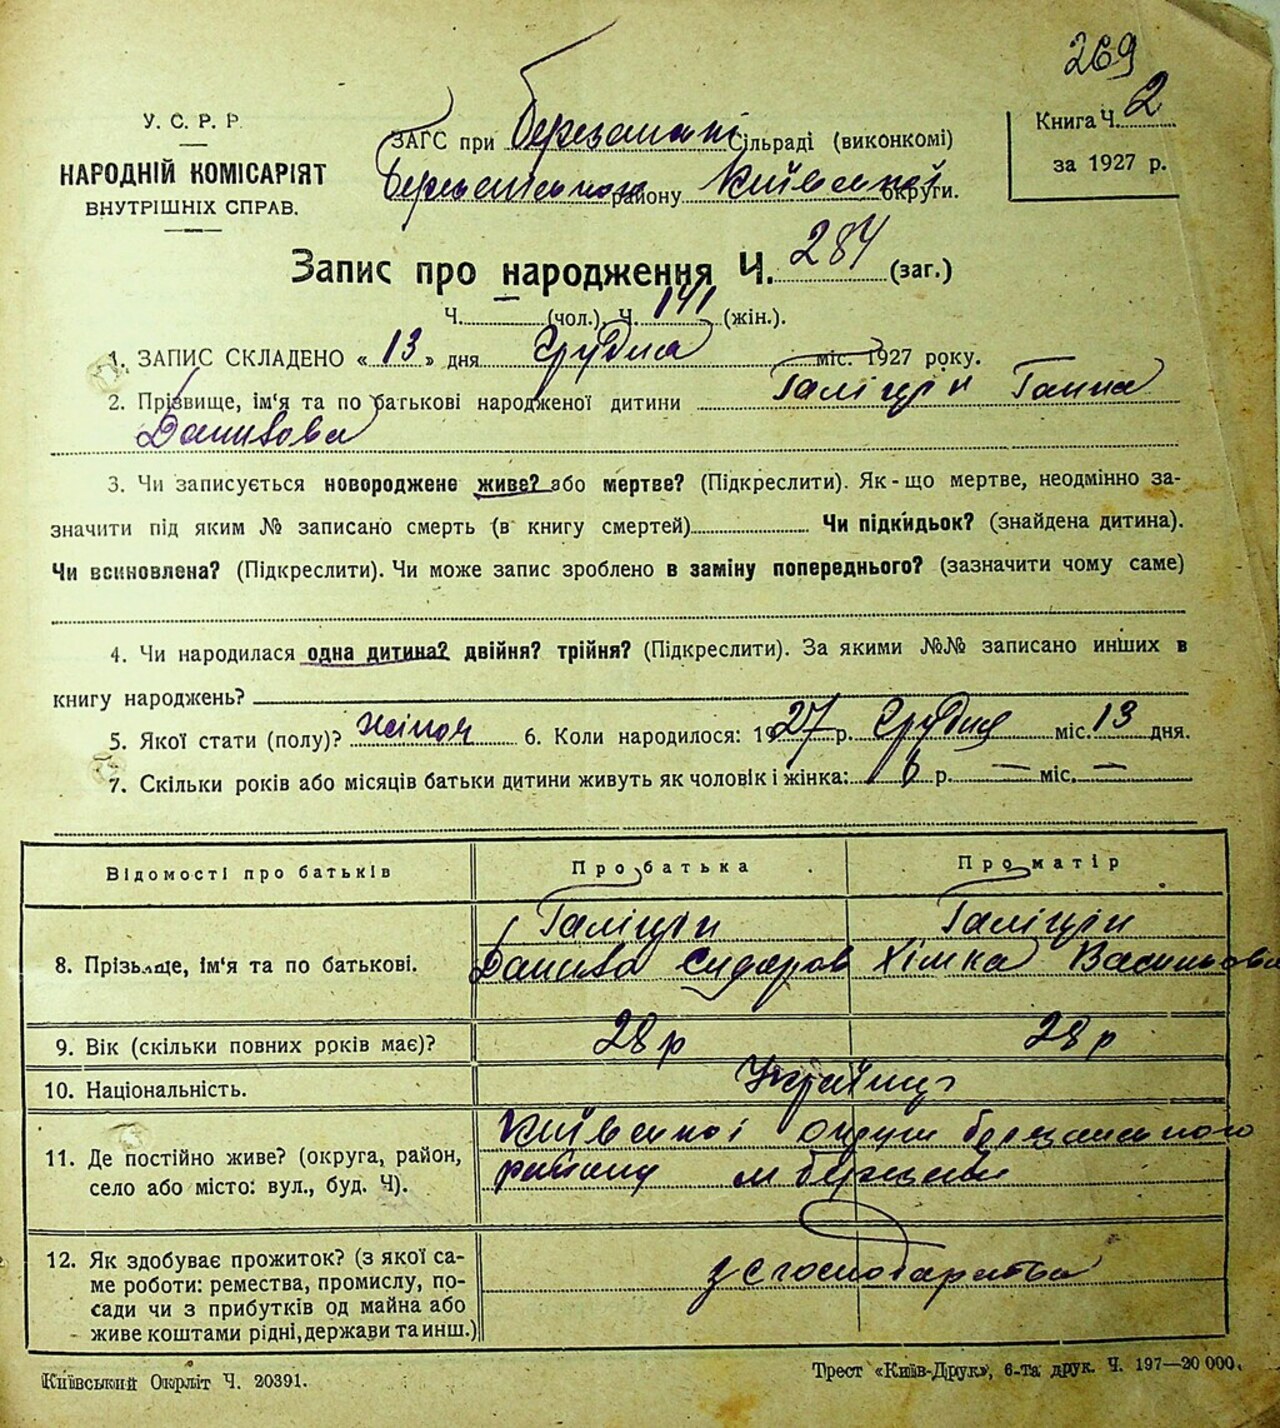 269
У. С. Р. Р.
НАРОДНІЙ КОМІСАРІЯТ
ВНУТРІШНІХ СПРАВ.
ЗАГС при Березанській Сільраді (виконкомі)
Березанського району Київської округи.
Книга Ч. 2
за 1927 р.
Запис про народження Ч. 284 (заг.)
Ч. — (чол.), Ч. 141 (жін.).
1. ЗАПИС СКЛАДЕНО « 13 » дня Грудня міс. 1927 року.
2. Прізвище, ім‘я та по батькові народженої дитини Галіцин Ганна
Данилова
3. Чи записується новороджене живе? або мертве? (Підкреслити). Як-що мертве, неодмінно за-
значити під яким № записано смерть (в книгу смертей) Чи підкидьок? (знайдена дитина).
Чи всиновлена? (Підкреслити). Чи може запис зроблено в заміну попереднього? (зазначити чому саме)
4. Чи народилася одна дитина? двійня? трійня? (Підкреслити). За якими №№ записано инших в
книгу народжень?
5. Якої стати (полу)? жіноч 6. Коли народилося: 1927 р. Грудня міс. 13 дня.
7. Скільки років або місяців батьки дитини живуть як чоловік і жінка: 6 р. — міс. —
Відомості про батьків Про батька Про матір
8. Прізьвще, ім‘я та по батькові. Галіцин Галіцин
Данило Сидоров Хімка Васильовна
9. Вік (скільки повних років має)? 28 р 28 р
10. Національність. Українці
11. Де постійно живе? (округа, район,
село або місто: вул., буд. Ч). Київської округи Березанського
району м Березані
12. Як здобуває прожиток? (з якої са-
ме роботи: ремества, промислу, по-
сади чи з прибутків од майна або
живе коштами рідні, держави та инш.) з с господарства
Київський Окрліт Ч. 20391.
Трест «Київ-Друк», 6-та друк. Ч. 197—20 000.